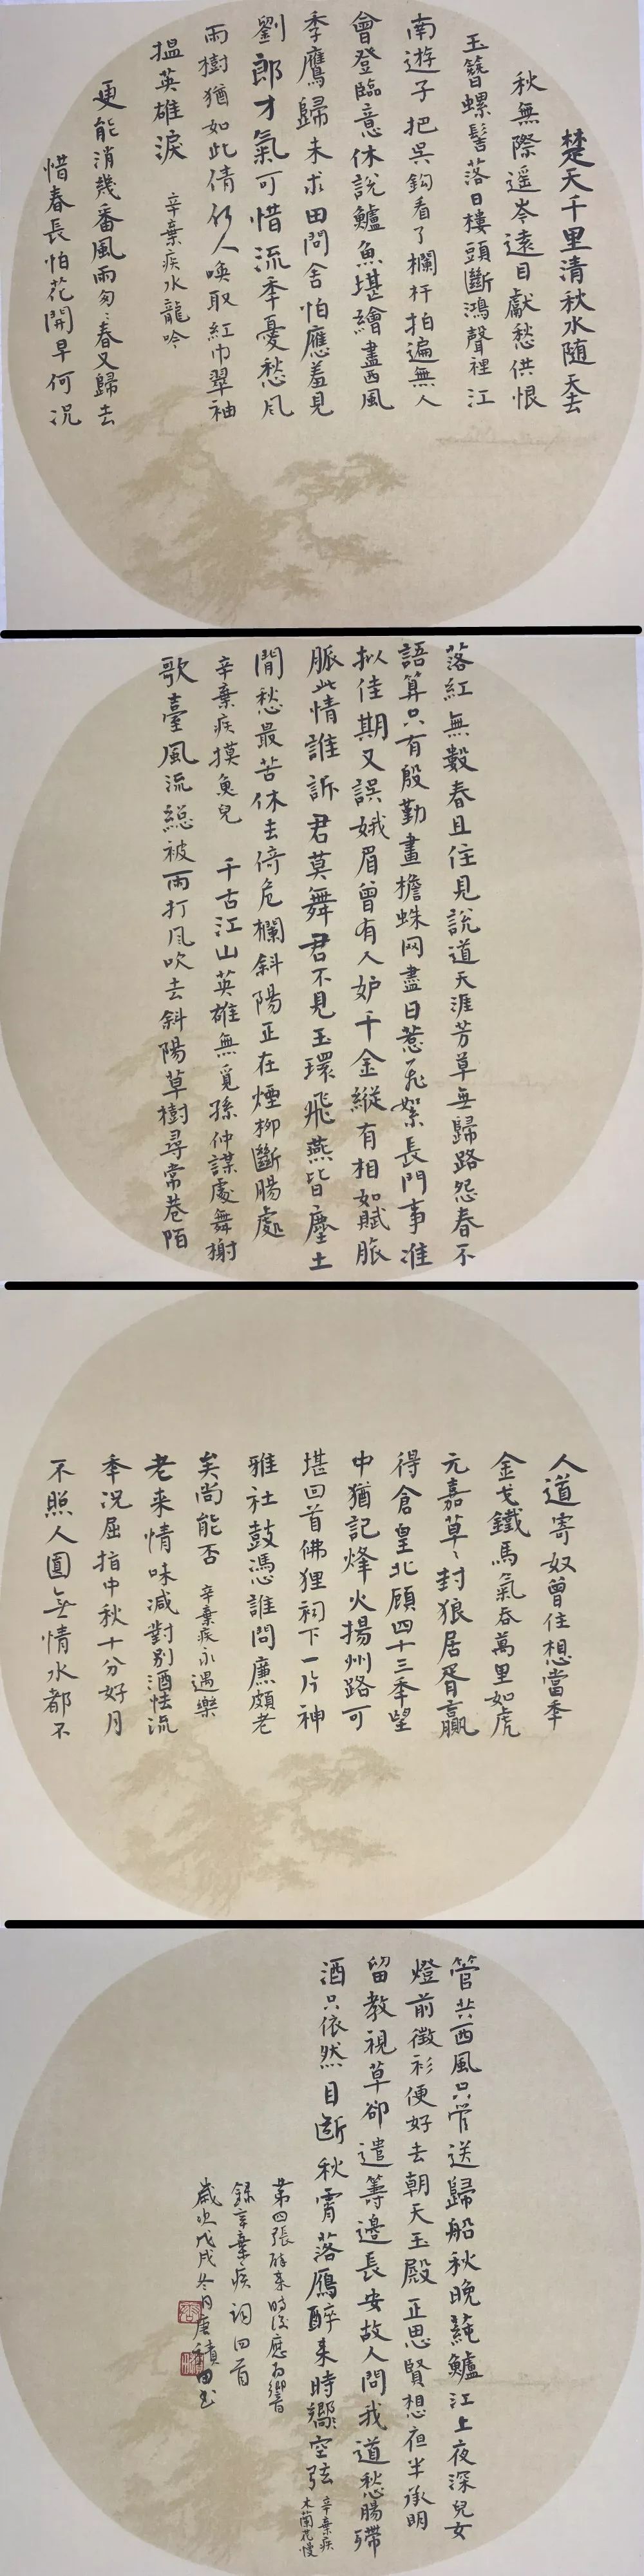 楚天千里清秋水随天去
秋無際遥岑遠目獻愁供恨
玉簪螺髻落日樓頭斷鴻聲裡江
南遊子把吳鉤看了欄杆拍遍無人
會登臨意休説鱸魚堪繪盡西風
季鷹歸未求田問舍怕應羞見
劉郎才氣可惜流年憂愁风
雨樹猶如此倩何人喚取紅巾翠袖
揾英雄淚 辛棄疾水龍吟
更能消幾番風雨匆〻春又歸去
惜春長怕花開早何况
落紅無數春且住見説道天涯芳草無歸路怨春不
語算只有殷勤畫檐蛛网盡日惹飛絮長門事准
拟佳期又誤娥眉曾有人妒千金縱有相如賦脈
脈此情誰訴君莫舞君不見玉環飛燕皆塵土
閒愁最苦休去倚危欄斜陽正在煙柳斷腸處
辛棄疾摸魚兒 千古江山英雄無覓孫仲謀處舞榭
歌臺風流總被雨打风吹去斜陽草樹尋常巷陌
人道寄奴曾住想當年
金戈鐵馬氣吞萬里如虎
元嘉草〻封狼居胥贏
得倉皇北顧四十三年望
中猶記烽火揚州路可
堪回首佛狸祠下一片神
雅社鼓馮誰問廉頗老
矣尚能否 辛棄疾永遇樂
老来情味减對别酒怯流
年况屈指中秋十分好月
不照人圓無情水都不
管共西風只管送歸船秋晚蒓鱸江上夜深兒女
燈前徵衫便好去朝天玉殿正思賢想夜半承明
留教視草卻遣籌邊長安故人問我道愁腸殢
酒只依然目断秋霄落鴈醉来時響空弦 辛棄疾
木蘭花慢
第四張醉来時後應为響
録辛棄疾词四首
歲次戊戌冬月唐積田书